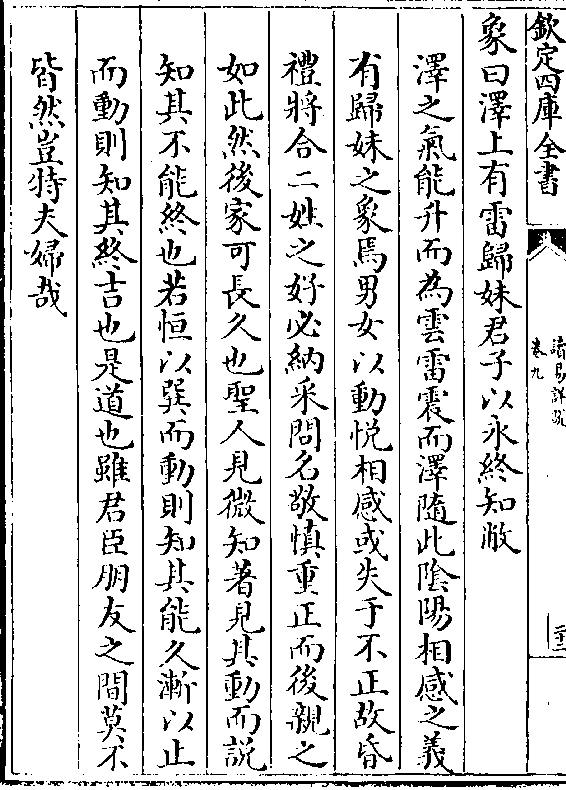 欽定四庫全書
讀易詳說
卷九
二十二
象曰澤上有雷歸妹君子以永終知敝
澤之氣能升而為雲雷震而澤隨此陰陽相感之義
有歸妹之象焉男女以動悅相感或失于不正故昏
禮將合二姓之好必納采問名敬慎重正而後親之
如此然後家可長久也聖人見微知著見其動而說
知其不能終也若恒以巽而動則知其能久漸以止
而動則知其終吉也是道也雖君臣朋友之間莫不
皆然豈特夫婦哉